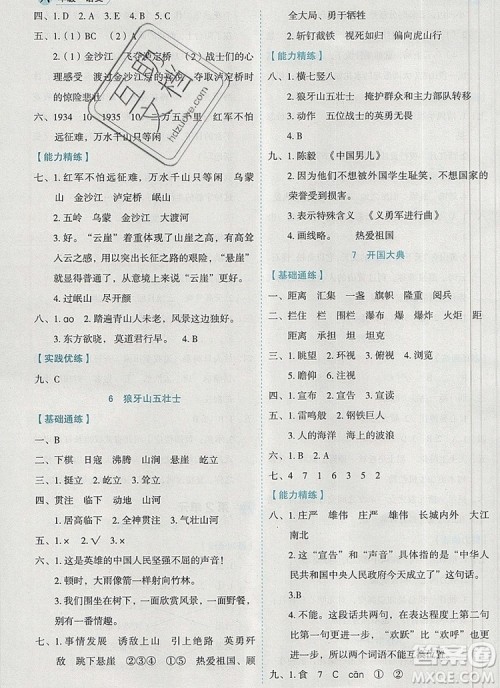 四、1. D 2. A 3. C 4. A
五、1. （1）BC （2）AD
2. （1）金沙江 飞夺泸定桥 （2）战士们的心
的惊险悲壮
六、1934 10 1935 10 二万五千里 红军不怕
远征难，万水千山只等闲
【能力精练】
七、1. 红军不怕远征难，万水千山只等闲 乌蒙
山 金沙江 泸定桥 岷山
2. 五岭 乌蒙山 金沙江 大渡河
3. 好。“云崖”着重体现了山崖之高，有高耸入
云之感，用以突出长征之路的艰险，“悬崖”
虽然也是崖，从意境上来说“云崖”更广阔。
4. 过岷山 尽开颜
八、1. ào 2. 踏遍青山人未老，风景这边独好。
3. 东方欲晓，莫道君行早。 4. B
【实践优练】
九、C
6 狼牙山五壮士
【基础通练】
一、B
二、下棋 日寇 沸腾 山涧 悬崖 屹立
三、1. B 2. A 3. B
四、贯注 临下 动地 山河
1. 居高临下 2. 全神贯注
五、B
六、1. 这是英雄的中国人民坚强不屈的声音！
2. 顿时，雨点像利箭般射向竹林。
3. 例：有的唱歌，有的跳舞，有的一面野餐，
一面谈笑，别有一番情趣。
七、1. 事情发展 诱敌上山 引上绝路 英勇歼
敌 跳下悬崖 ②③④ ①⑤ 热爱祖国、顾
全大局、勇于牺牲
2. 斩钉截铁 视死如归 向虎山行
【能力精练】
八、1. 横七竖八
2. 狼牙山五壮士 掩护群众和主力部队转移
3. 动作 五位战士的英勇无畏
4. B
九、1. 陈毅 《中国男儿》
2. 因为他们不想被外国学生耻笑，不想国家的
荣誉受到损害。
3. 表示特殊含义 《义勇军进行曲》
4. 画线略。 热爱祖国
7 开国大典
【基础通练】
一、距离 汇集 一盏 旗帜 阅兵 电钮
二、拦住 住所 制服 爆发 火炮 火炬 距
距离 承担 坦克 坦白
三、1. 眺望 2. 环视 3. 俯视 4. 浏览
5. 瞻仰 6. 注视
四、1. 宣布 2. 宣告 3. 宣读
五、1. 雷鸣般 2. 钢铁巨人
3. 人的海洋 海上的波浪
六、1. D 2. C 3. B 4. A
七、4 7 1 6 3 5 2
【能力精练】
八、1. 庄严 雄伟 庄严 雄伟 长城内外 大江
南北
2. 这“宣告”和“声音”是指“中华人民共
和国中央人民政府今天成立了”这句话。
3. B
4. 不能。这段话共四个分句，前后两个分句
有联系，“欢跃”比“欢呼”的程度
更进一步，所以不能互换位置。
九、1. 食 7 C cān ① ②